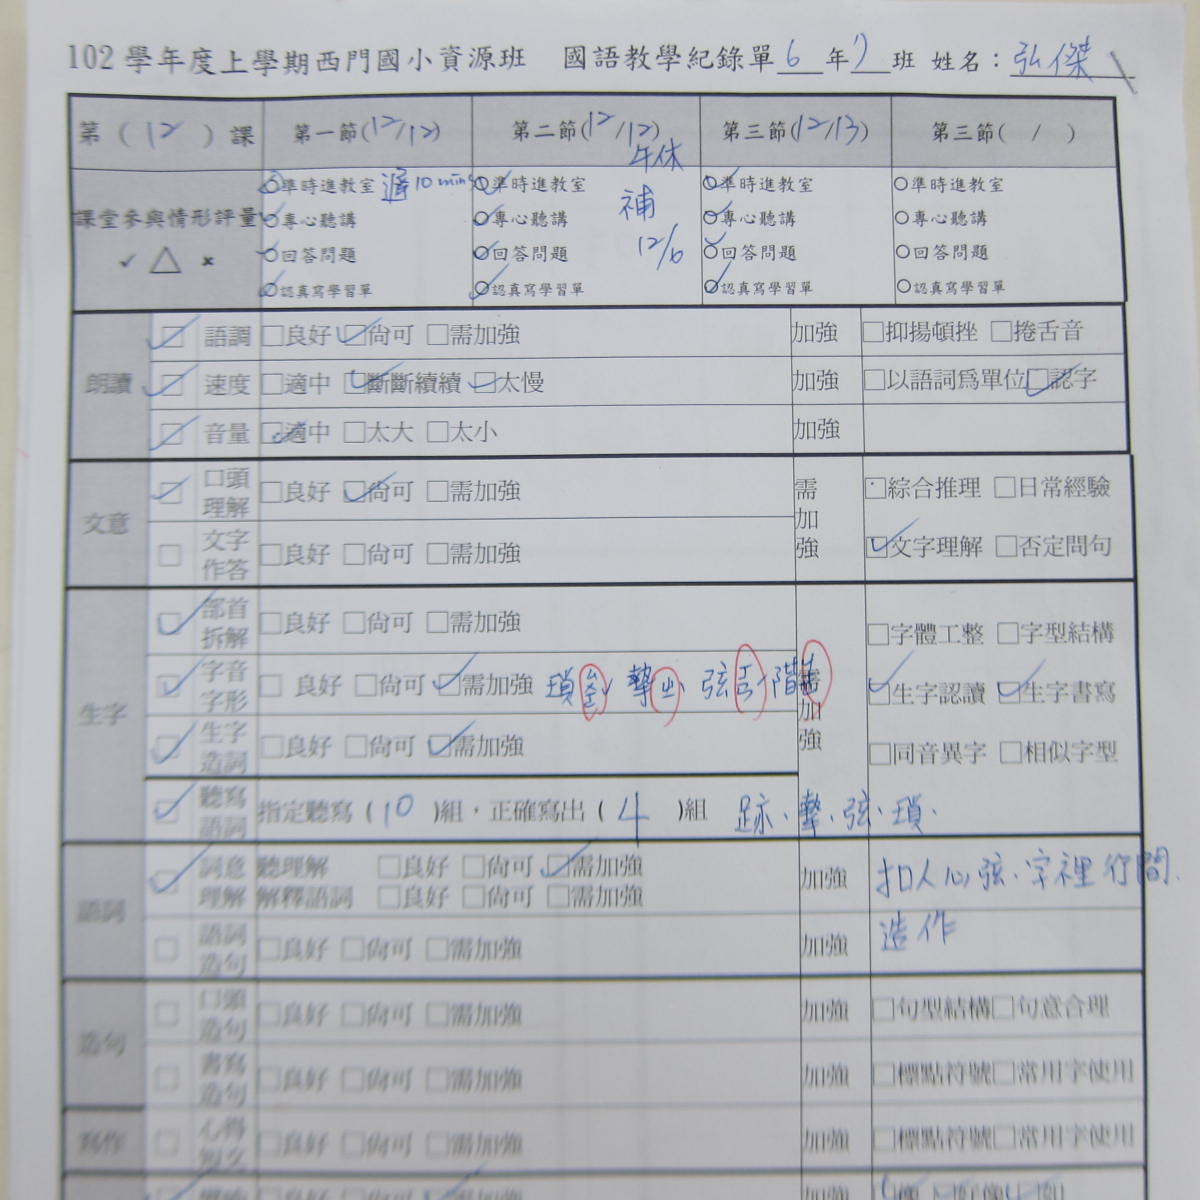 102 學年度上學期西門國小資源班 國語教學紀錄單 6 年 7 班 姓名：弘傑
第 ( 12 ) 課 第一節(12/12) 第二節(12/12) 第三節(12/13) 第三節( / )
午休
課堂參與情形評量
✓ △ ×
○準時進教室 遲10 mins ○準時進教室 ○準時進教室 ○準時進教室
○專心聽講 ○專心聽講 補 ○專心聽講 ○專心聽講
○回答問題 ○回答問題 12/6 ○回答問題 ○回答問題
○認真寫學習單 ○認真寫學習單 ○認真寫學習單 ○認真寫學習單
朗讀
☑ 語調 □良好 ☑尚可 □需加強 加強 □抑揚頓挫 □捲舌音
☑ 速度 □適中 ☑斷斷續續 ☑太慢 加強 □以語詞為單位 ☑認字
☑ 音量 ☑適中 □太大 □太小 加強
文意
☑ 口頭理解 □良好 ☑尚可 □需加強 需加強 □綜合推理 □日常經驗
□ 文字作答 □良好 □尚可 □需加強 ☑文字理解 □否定問句
生字
☑ 部首拆解 □良好 □尚可 □需加強 需加強 □字體工整 □字型結構
☑ 字音字形 □良好 □尚可 ☑需加強 瑣 弦 階 ☑生字認讀 ☑生字書寫
☑ 生字造詞 □良好 □尚可 ☑需加強 □同音異字 □相似字型
☑ 聽寫語詞 指定聽寫 ( 10 )組，正確寫出 ( 4 )組 跡、擊、弦、瑣.
語詞
☑ 詞意理解 聽理解 □良好 □尚可 ☑需加強 加強 扣人心弦、字裡行間.
解釋語詞 □良好 □尚可 □需加強 造作
□ 語詞造句 □良好 □尚可 □需加強 加強
造句
□ 口頭造句 □良好 □尚可 □需加強 加強 □句型結構□句意合理
□ 書寫造句 □良好 □尚可 □需加強 加強 □標點符號□常用字使用
寫作
□ 心得短文 □良好 □尚可 □需加強 加強 □標點符號□常用字使用